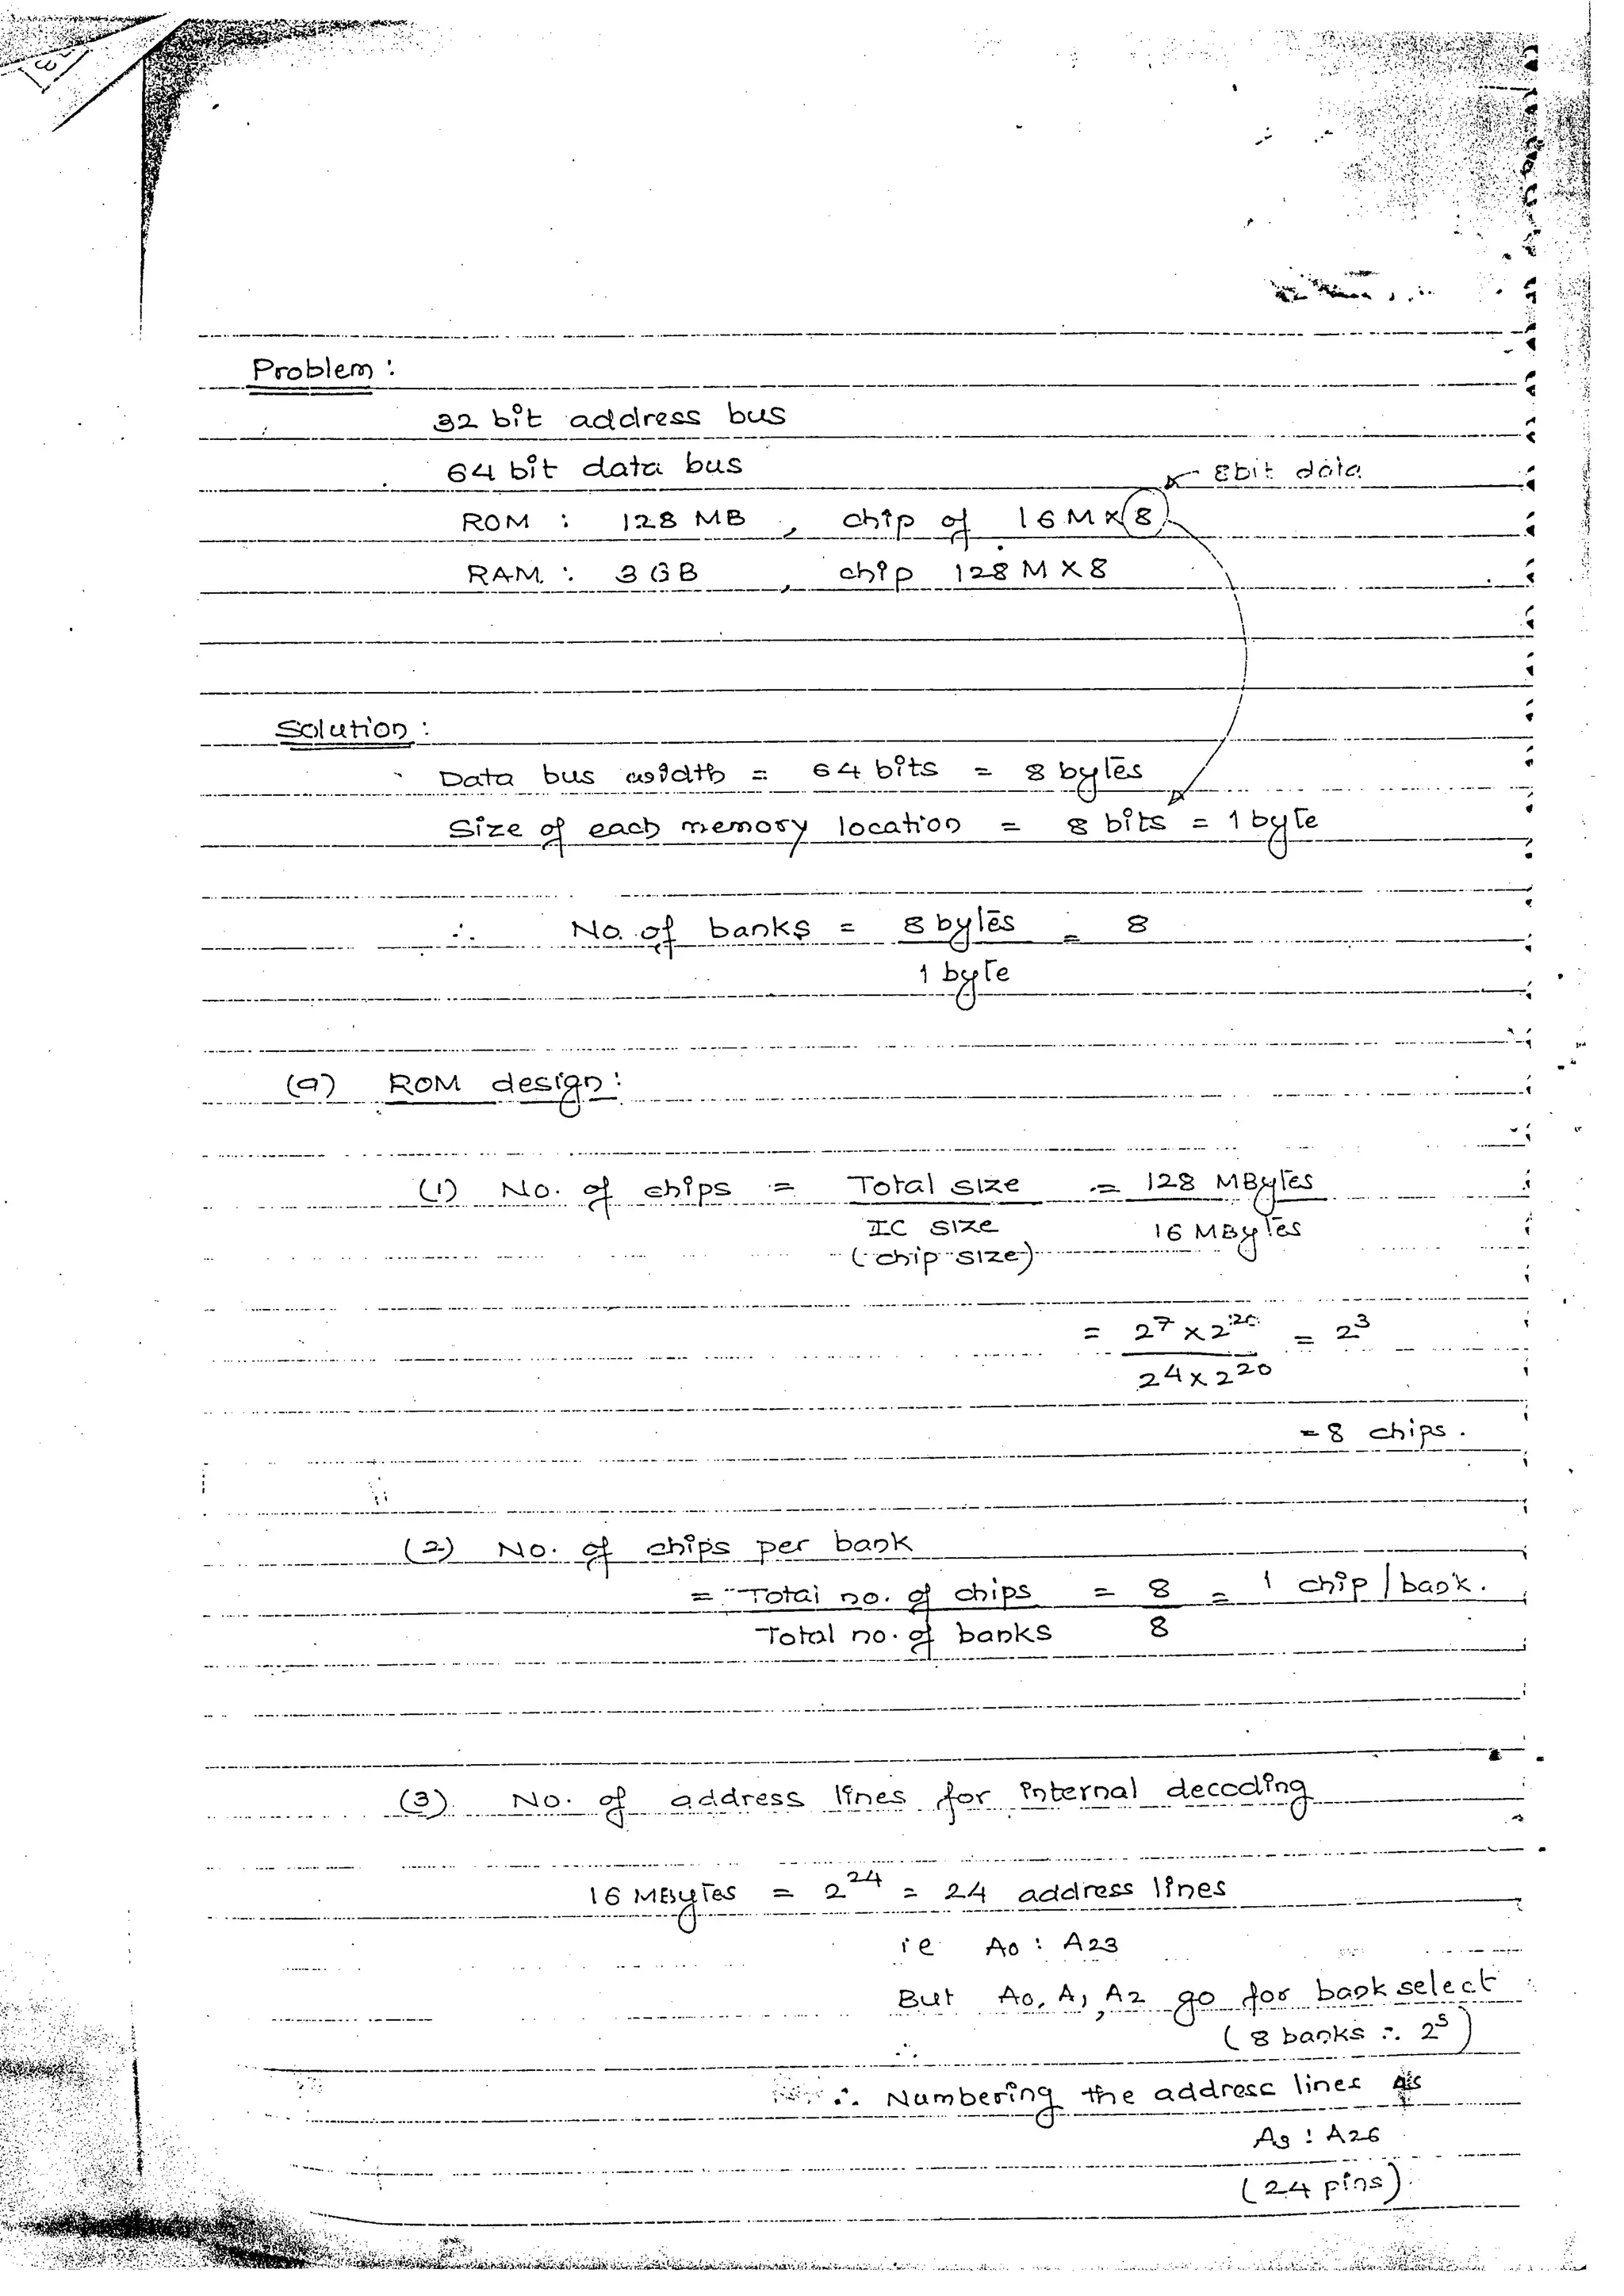 Problem :
32 bit address bus
64 bit data bus
8bit data
ROM : 128 MB , chip of 16M X 8
RAM : 3 GB , chip 128 M X 8
Solution :
Data bus width = 64 bits = 8 bytes
Size of each memory location = 8 bits = 1 byte
∴ No. of banks = 8 bytes = 8
1 byte
(a) ROM design :
(1) No. of chips = Total size = 128 MBytes
IC size 16 MBytes
(chip size)
= 2^7 x 2^20 = 2^3
2^4 x 2^20
= 8 chips .
(2) No. of chips per bank
= Total no. of chips = 8 = 1 chip / bank .
Total no. of banks 8
(3) No. of address lines for internal decoding
16 MBytes = 2^24 = 24 address lines
ie A0 : A23
But A0, A1, A2 go for bank select
(8 banks ∴ 2^3)
∴
∴ Numbering the address lines as
A3 : A26
(24 pins)